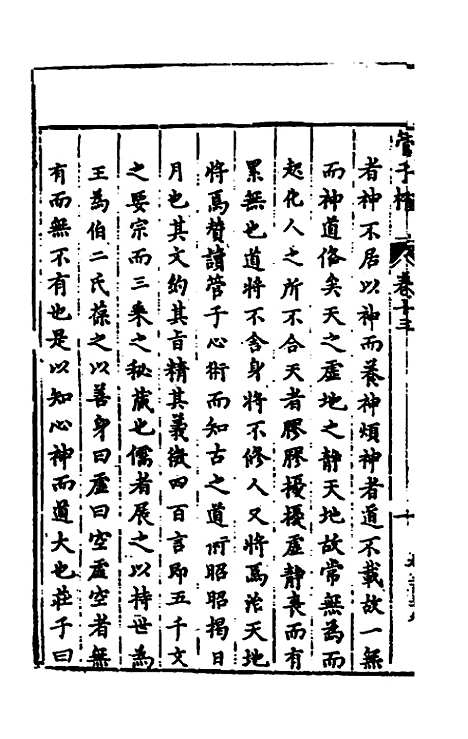 管子榷
卷十三
十
者神不居以神而養神煩神者道不載故一無
而神道俻矣天之虛地之靜天地故常無為而
起化人之所不合天者膠膠擾擾虛靜喪而有
累無也道將不舍身將不修人又將焉法天地
將焉贊讀管子心術而知古之道所昭昭揭日
月也其文約其旨精其義微四百言即五千文
之要宗而三乗之秘藏也儒者展之以持世為
王為伯二氏葆之以善身曰虛曰空虛空者無
有而無不有也是以知心神而道大也莊子曰